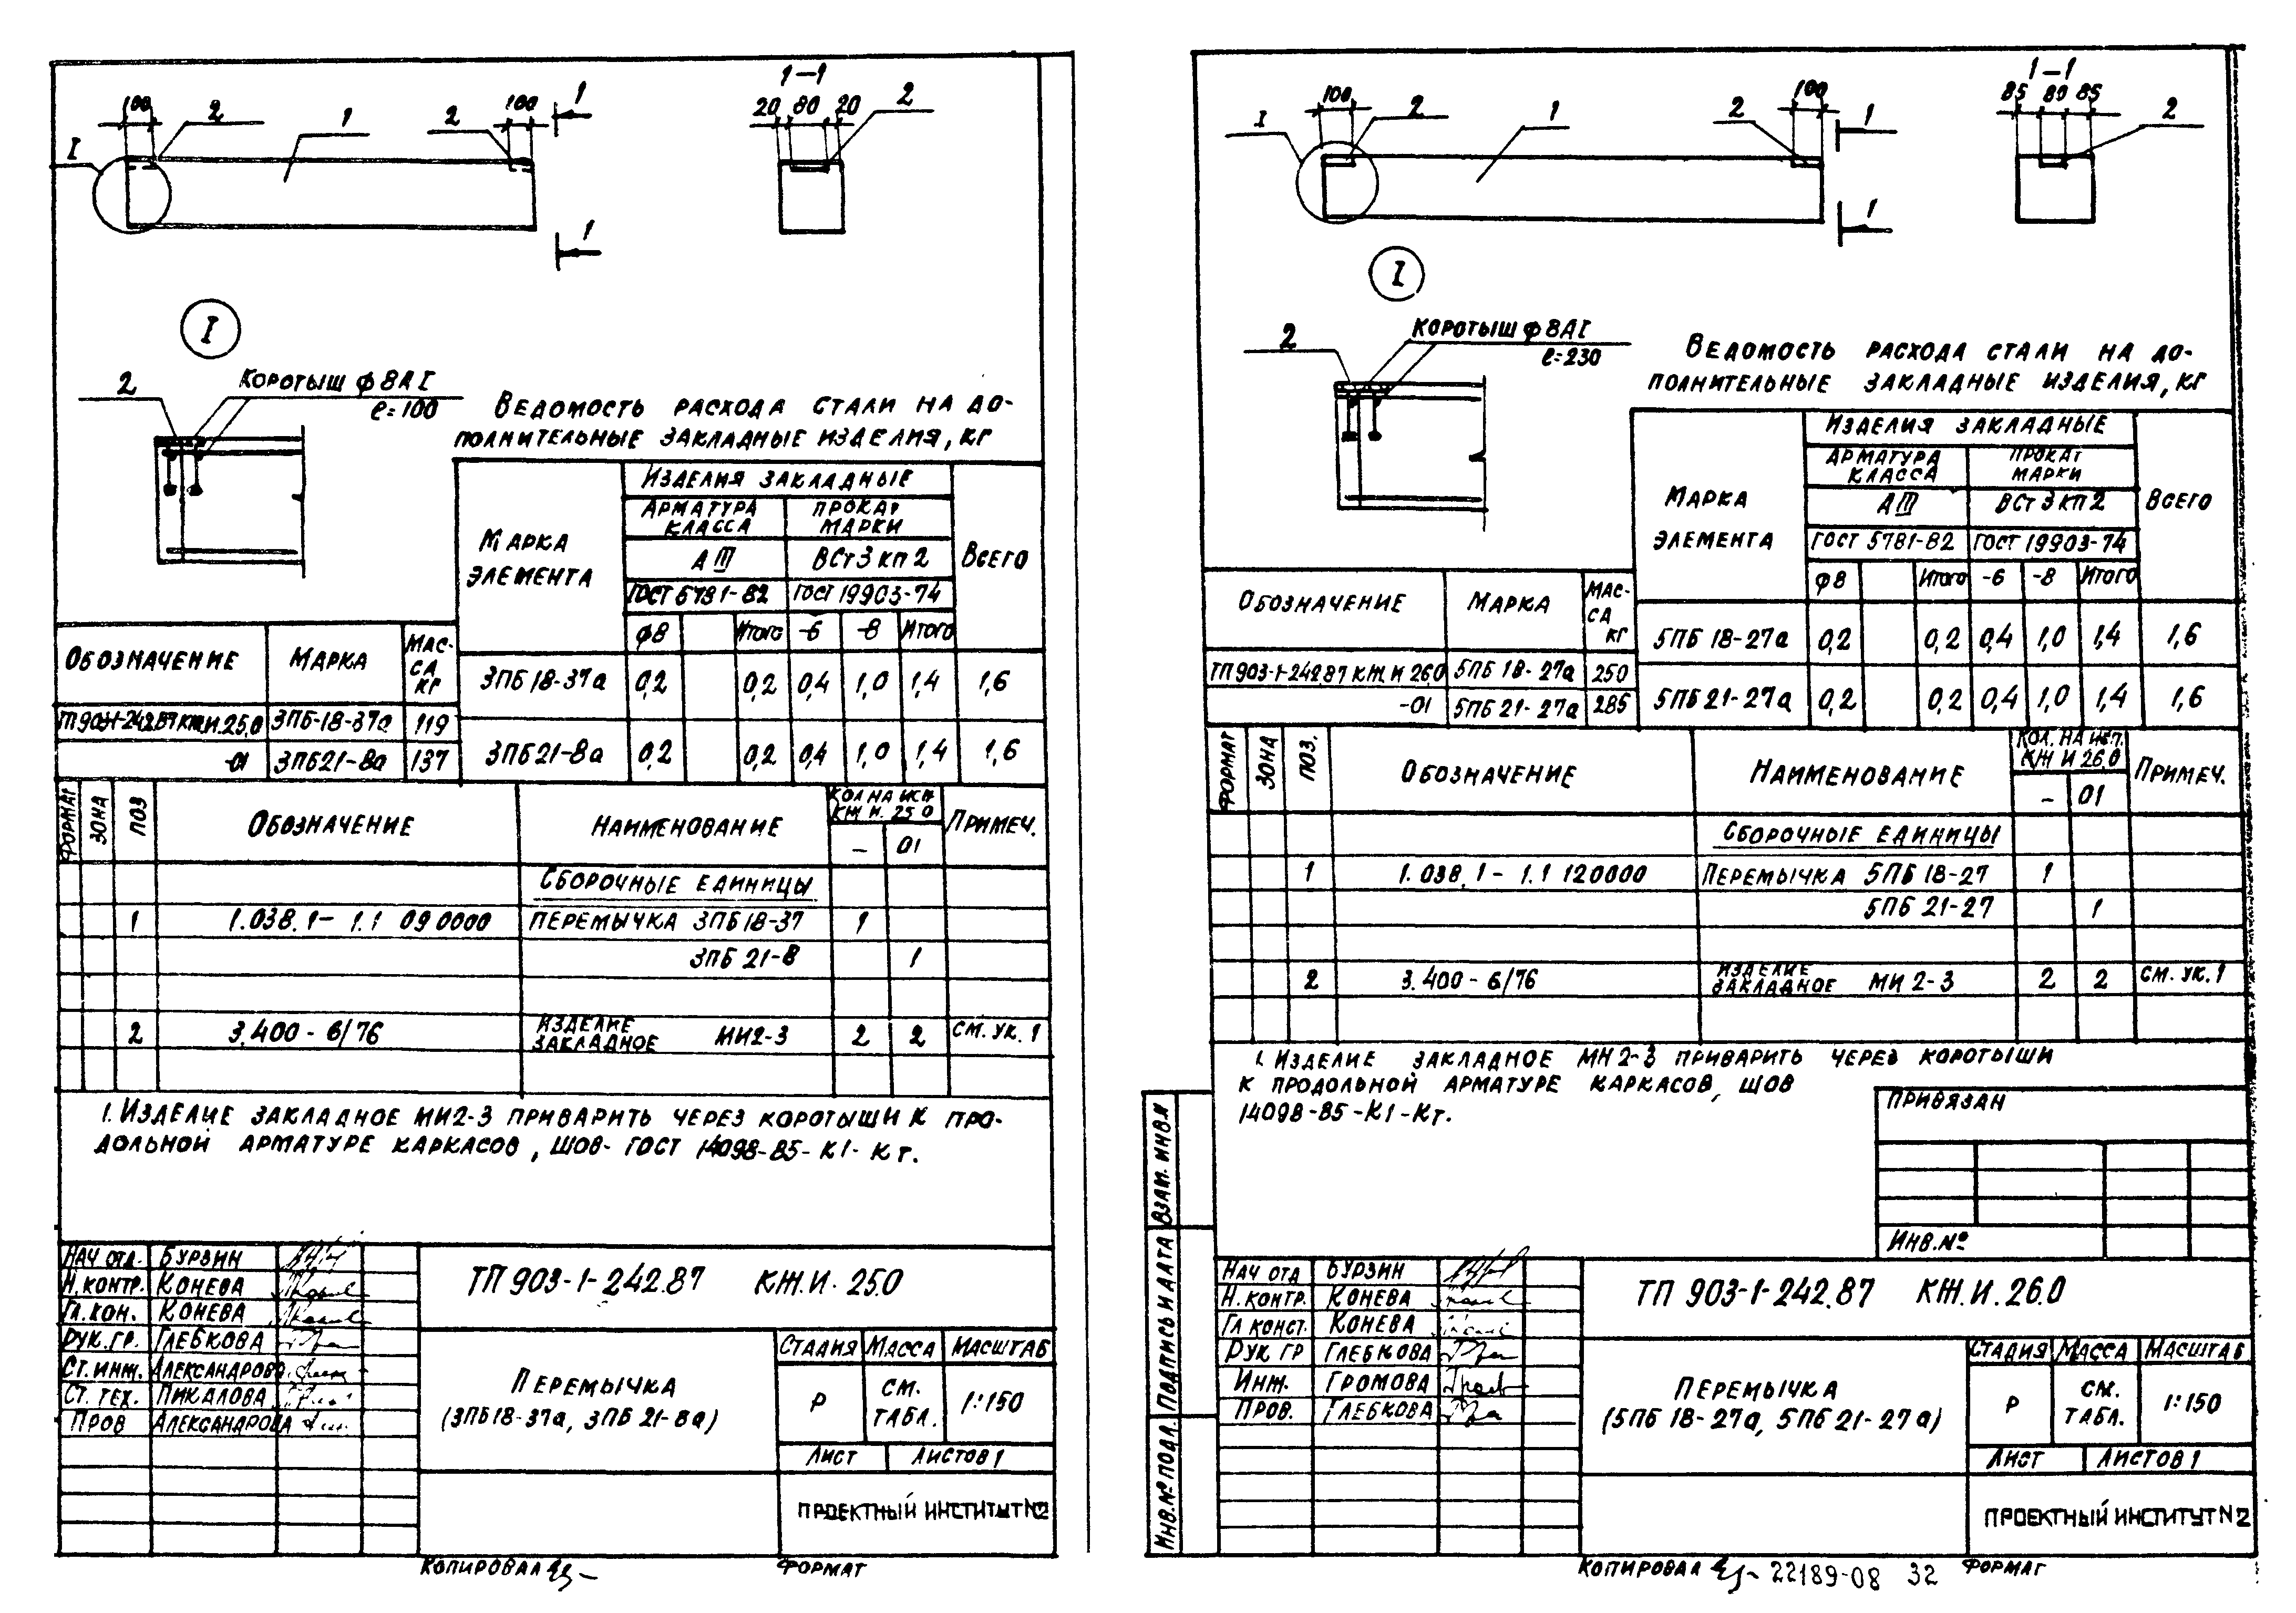 1-1
100
2
1
2
100
1
20 80 20
2
I
1
I
2
Коротыш ф 8А I
ℓ=100
Ведомость расхода стали на до-
полнительные закладные изделия, кг
Марка элемента
Изделия закладные
Всего
Арматура класса
прокат марки
А III
ВСт3кп2
ГОСТ 5781-82
ГОСТ 19903-74
ф8 Итого -6 -8 Итого
3ПБ18-37а 0,2 0,2 0,4 1,0 1,4 1,6
3ПБ21-8а 0,2 0,2 0,4 1,0 1,4 1,6
Обозначение Марка Мас-са кг
ТП903-1-242.87 КЖ.И.25.0 3ПБ-18-37а 119
-01 3ПБ21-8а 137
Формат Зона Поз Обозначение Наименование Кол на исп КЖ И. 25 0 Примеч.
– 01
Сборочные единицы
1 1.038.1- 1.1 09 0000 Перемычка 3ПБ18-37 1
3ПБ 21-8 1
2 3.400-6/76 Изделие закладное МИ2-3 2 2 См. ук. 1
1. Изделие закладное МИ2-3 приварить через коротыши к про-
дольной арматуре каркасов, шов- ГОСТ 14098-85-К1-Кт.
Нач отд. Бурзин
Н.контр. Конева
Гл.кон. Конева
Рук.гр. Глебкова
Ст.инж. Александрова
Ст. тех. Пикалова
Пров Александрова
ТП 903-1-242.87 КЖ.И. 25.0
Перемычка
(3ПБ18-37а, 3ПБ 21-8а)
Стадия Масса Масштаб
Р см. табл. 1:150
Лист Листов 1
Проектный институт N2
Копировал
Формат
1-1
100
2
1
2
100
1
85 80 85
2
I
1
I
2
Коротыш ф 8А I
ℓ=230
Ведомость расхода стали на до-
полнительные закладные изделия, кг
Марка элемента
Изделия закладные
Всего
Арматура класса
прокат марки
А III
ВСт3кп2
ГОСТ 5781-82
ГОСТ 19903-74
ф8 Итого -6 -8 Итого
5ПБ 18-27а 0,2 0,2 0,4 1,0 1,4 1,6
5ПБ21-27а 0,2 0,2 0,4 1,0 1,4 1,6
Обозначение Марка Мас-са кг
ТП 903-1-242.87 КЖ И 26.0 5ПБ 18-27а 250
-01 5ПБ 21-27а 285
Формат Зона Поз. Обозначение Наименование Кол. на исп. КЖ И 26.0 Примеч.
– 01
Сборочные единицы
1 1.038.1- 1.1 120000 Перемычка 5ПБ 18-27 1
5ПБ 21-27 1
2 3.400-6/76 Изделие закладное МИ 2-3 2 2 См. ук. 1
1. Изделие закладное МН 2-3 приварить через коротыши
к продольной арматуре каркасов, шов
14098-85-К1-Кт.
Привязан
Инв.№
Взам. инв.№
Подпись и дата
Инв.№ подл.
Нач отд Бурзин
Н.контр. Конева
Гл конст. Конева
Рук гр Глебкова
Инж. Громова
Пров. Глебкова
ТП 903-1-242.87 КЖ.И.26.0
Перемычка
(5ПБ 18-27а, 5ПБ 21-27а)
Стадия Масса Масштаб
Р см. табл. 1:150
Лист Листов 1
Проектный институт N2
Копировал
22189-08 32
Формат